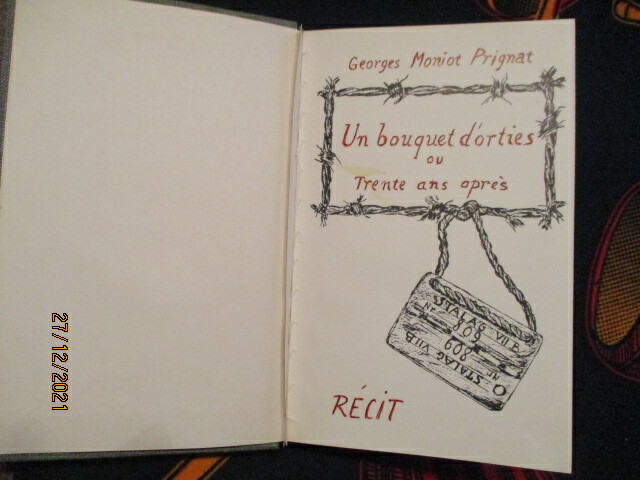 Georges Moniot Prignat
Un bouquet d'orties
ou
Trente ans après
STALAG VII B
N° 809
809
N°
STALAG VII B
RÉCIT
27/12/2021